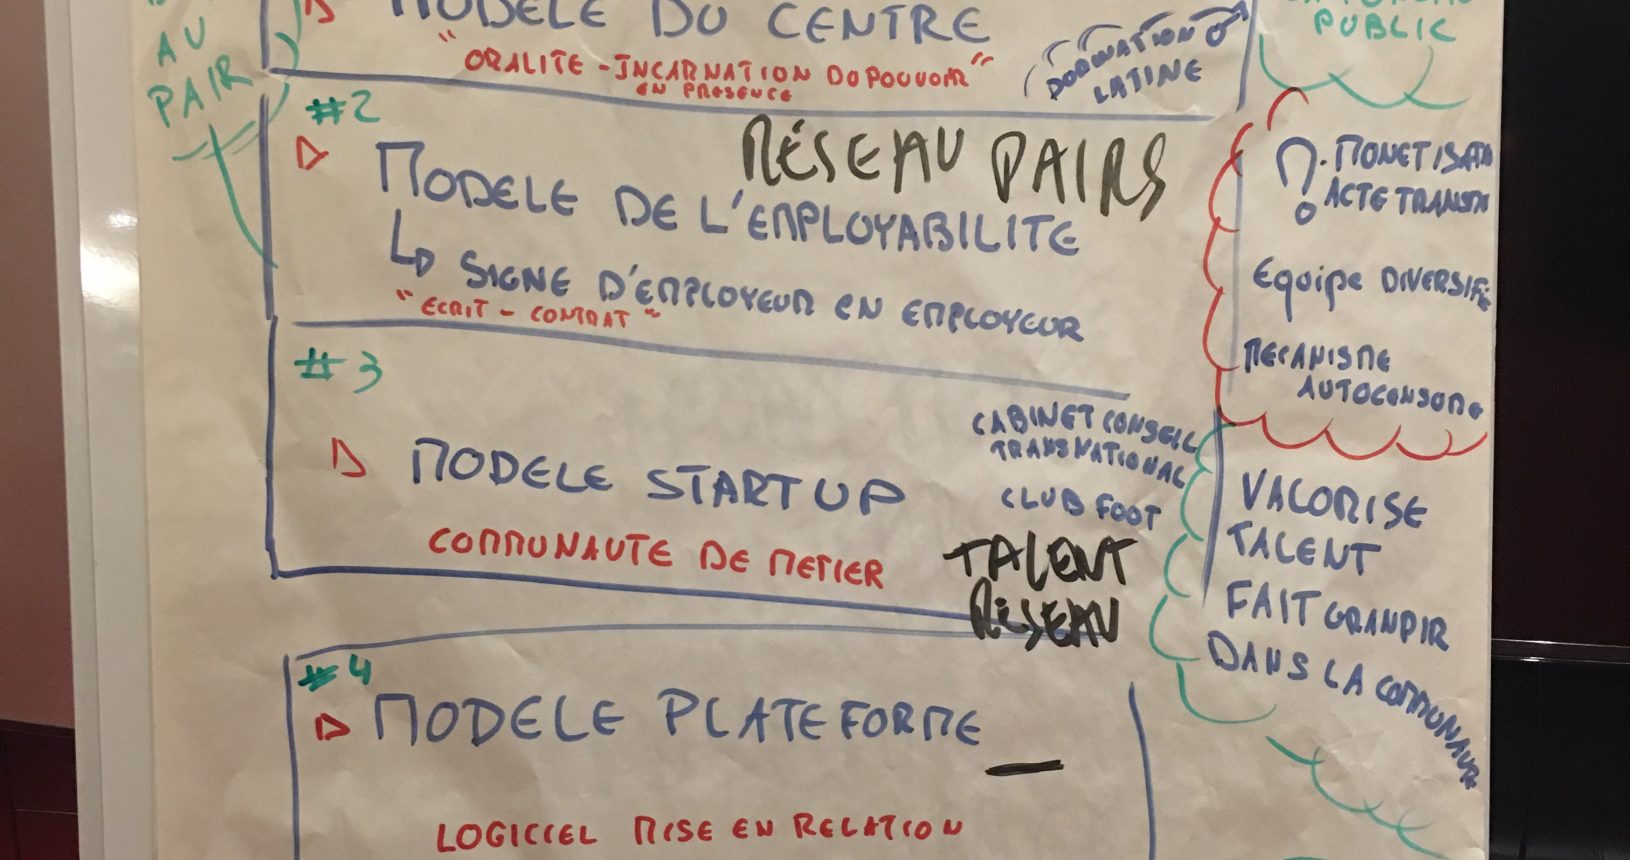 AU
PAIR
MODELE DU CENTRE
"ORALITE - INCARNATION DU POUVOIR"
EN PRESENCE
DOMINATION
LATINE
PUBLIC
#2
RÉSEAU PAIRS
MODELE DE L'EMPLOYABILITE
SIGNE D'EMPLOYEUR EN EMPLOYEUR
"ECRIT - CONTRAT"
MONETISATN
ACTE TRANSM
Equipe DIVERSIFIE
MECANISME
AUTOCENSURE
#3
MODELE STARTUP
COMMUNAUTE DE METIER
CABINET CONSEIL
TRANSNATIONAL
CLUB FOOT
TALENT
RÉSEAU
VALORISE
TALENT
FAIT GRANDIR
DANS LA COMMUNAUTE
#4
MODELE PLATEFORME
LOGICIEL MISE EN RELATION